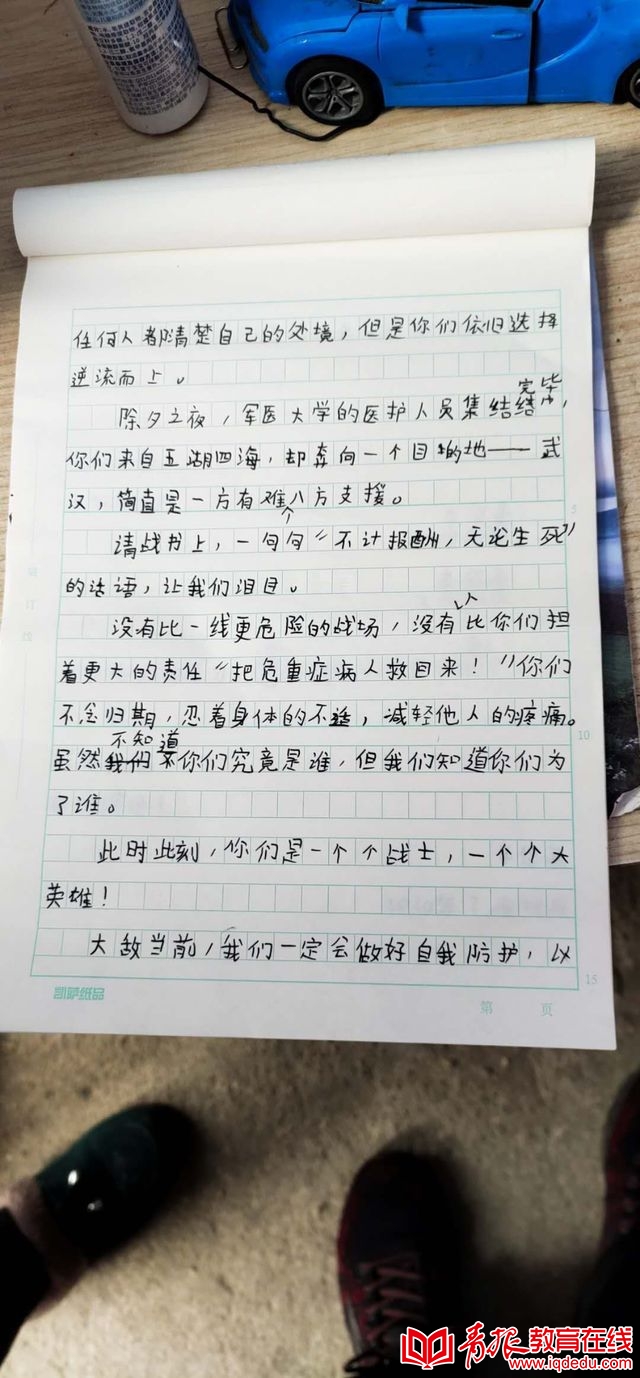 任何人都清楚自己的处境，但是你们依旧选择
逆流而上。
除夕之夜，军医大学的医护人员集结完毕，
你们来自五湖四海，却奔向一个目的地——武
汉，简直是一方有难八方支援。
请战书上，一句句“不计报酬，无论生死”
的话语，让我们泪目。
没有比一线更危险的战场，没有人比你们担
着更大的责任“把危重症病人救回来！”你们
不念归期，忍着身体的不适，减轻他人的疼痛。
虽然不知道你们究竟是谁，但我们知道你们为
了谁。
此时此刻，你们是一个个战士，一个个大
英雄！
大敌当前，我们一定会做好自我防护，以
5
10
15
凯萨纸品
第 页
青报教育在线
www.iqdedu.com